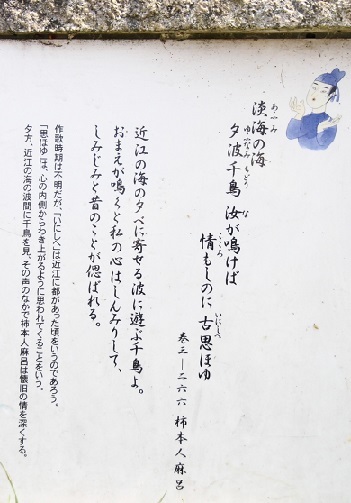 淡海の海
夕波千鳥 汝が鳴けば
情もしのに 古思ほゆ
巻三—二六六 柿本人麻呂
近江の海の夕べに寄せる波に遊ぶ千鳥よ。
おまえが鳴くと私の心はしんみりして、
しみじみと昔のことが偲ばれる。
作歌時期は不明だが、「いにしへ」は近江に都があった頃をいうのであろう。
「思ほゆ」は、心の内側からつき上がるように思われてくることをいう。
夕方、近江の海の波間に千鳥を見、その声のなかで柿本人麻呂は懐旧の情を深くする。